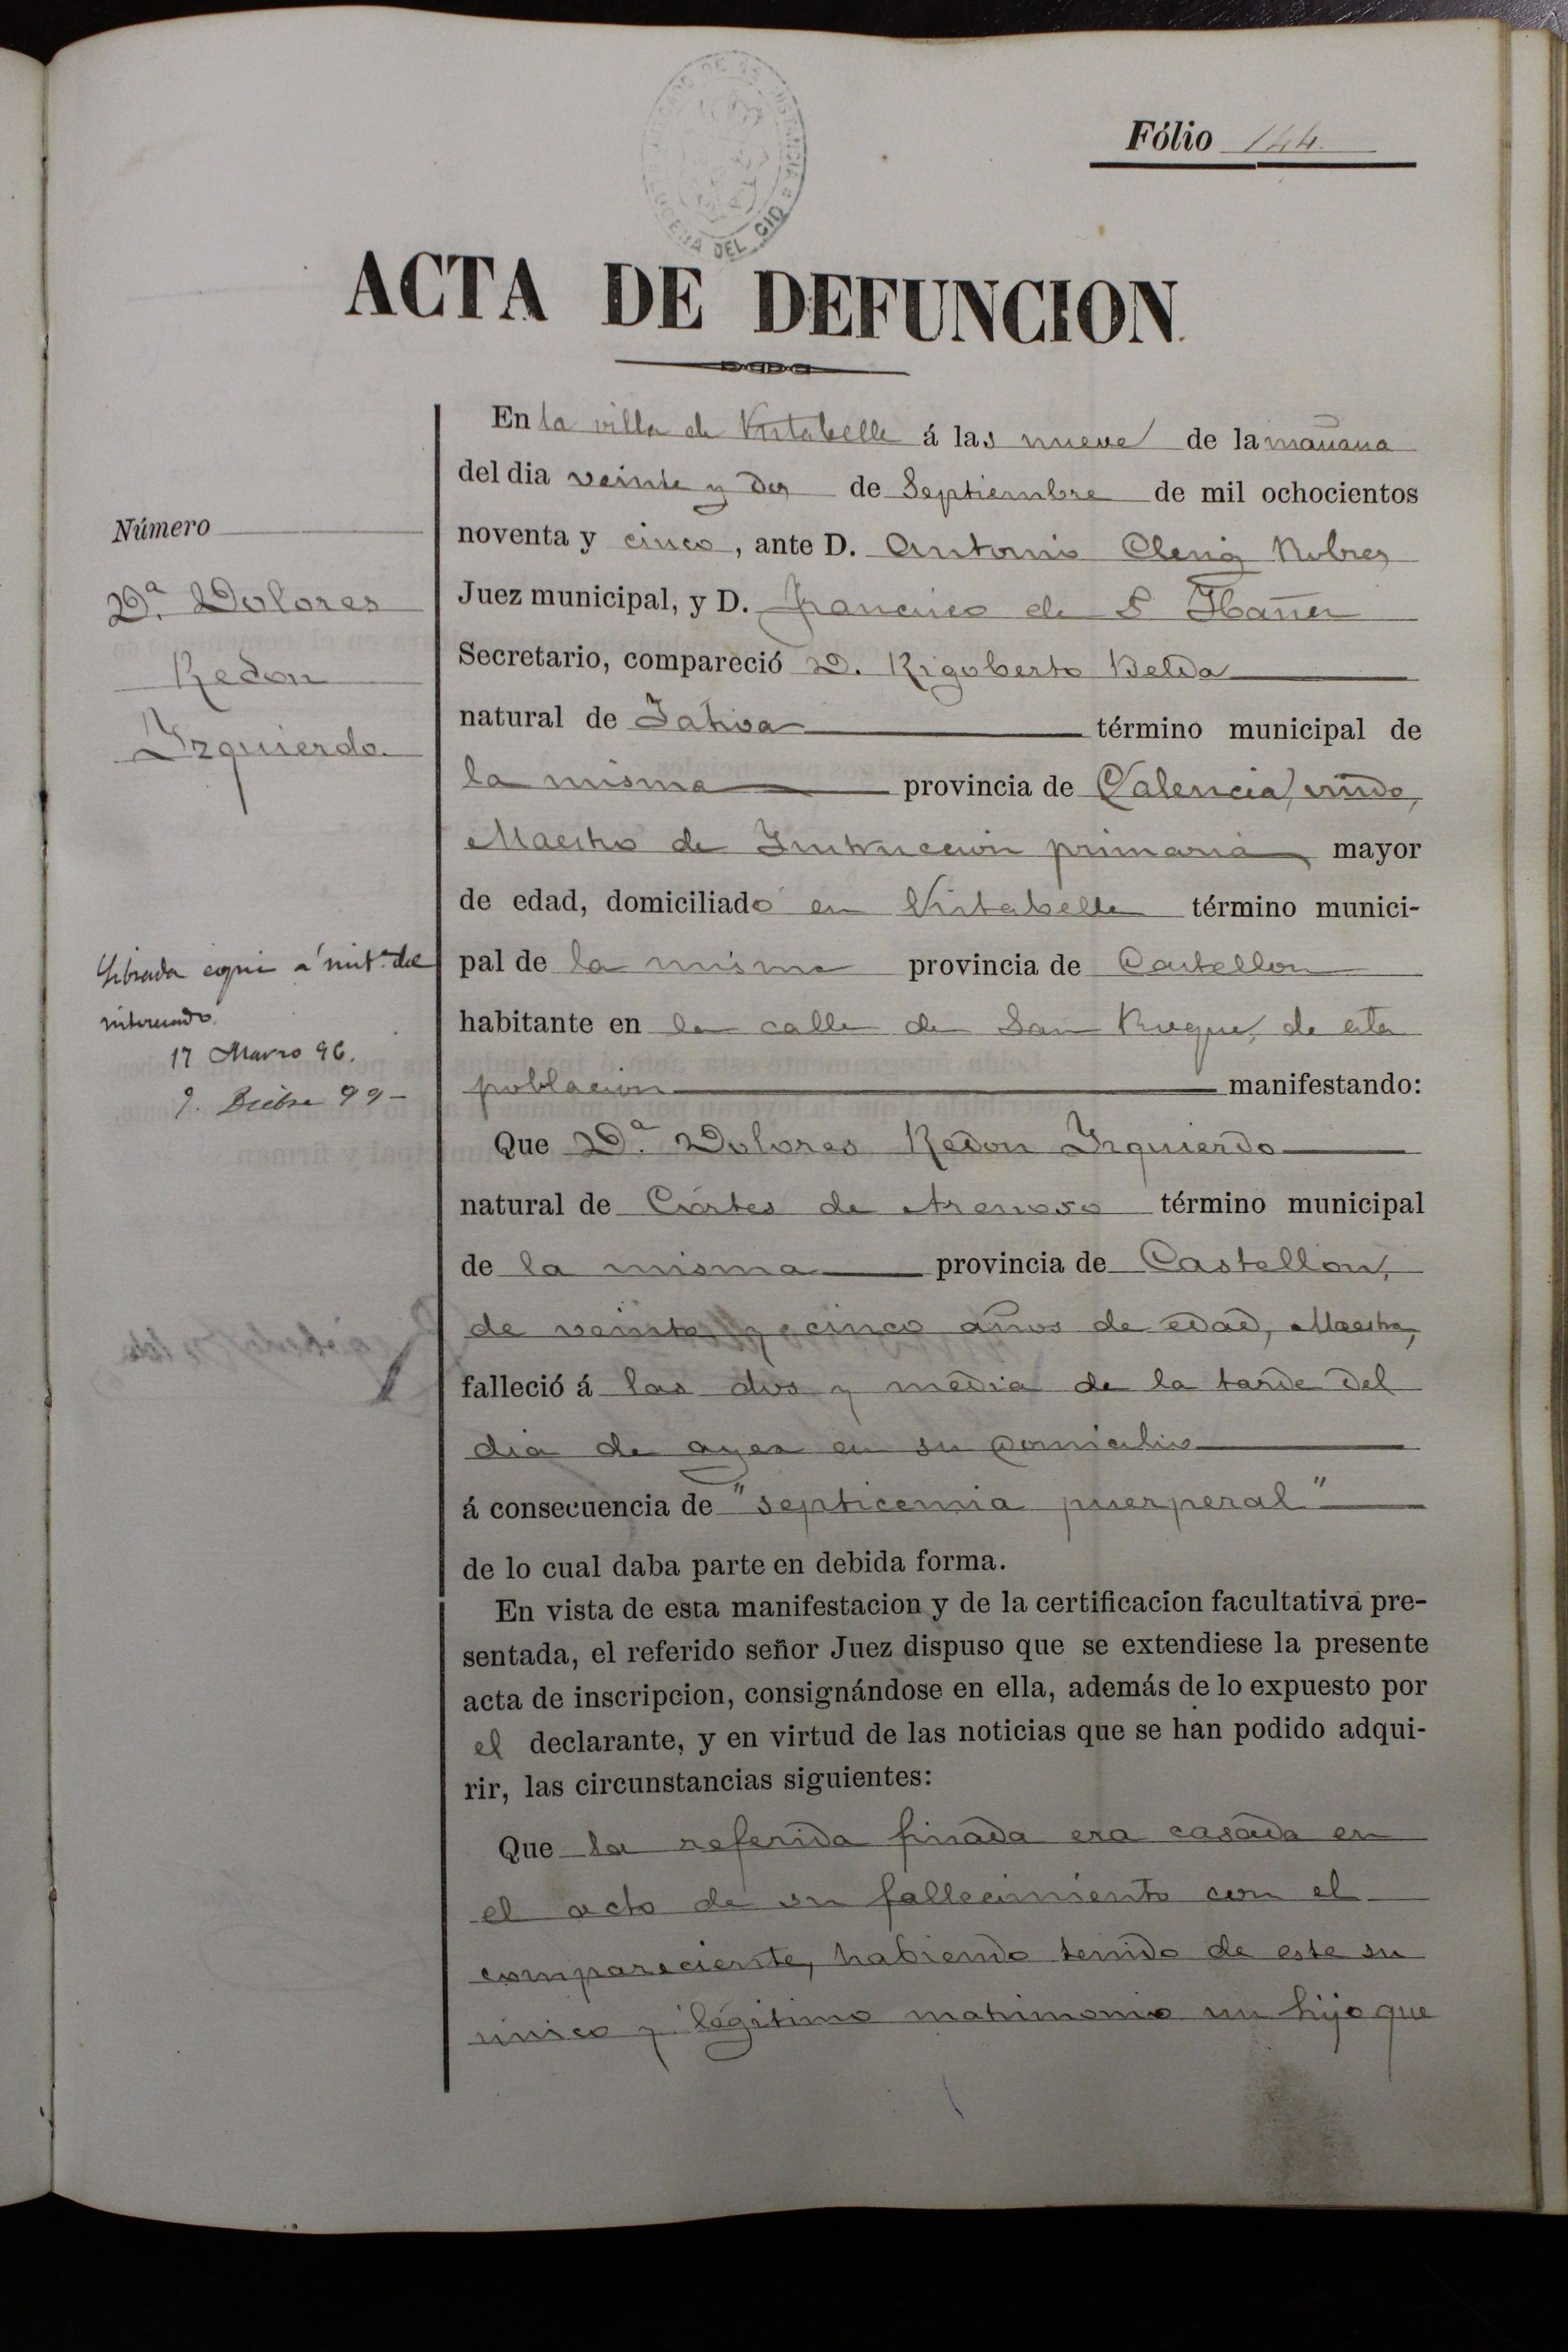 Fólio 144.
ACTA DE DEFUNCION.
En la villa de Vistabella á las nueve de la mañana
del dia veinte y dos de Septiembre de mil ochocientos
noventa y cinco, ante D. Antonio
Juez municipal, y D. Francisco de P. Ibañez
Secretario, compareció D. Rigoberto Belda
natural de Játiva término municipal de
la misma provincia de Valencia, viudo,
Maestro de Instruccion primaria, mayor
de edad, domiciliado en Vistabella término munici-
pal de la misma provincia de Castellon
habitante en la calle de San Roque, de esta
poblacion manifestando:
Que D.ª Dolores Redon Izquierdo
natural de Córtes de Arenoso término municipal
de la misma provincia de Castellon,
de veinte y cinco años de edad, Maestra,
falleció á las dos y media de la tarde del
dia de ayer en su domicilio
á consecuencia de "septicemia puerperal"
de lo cual daba parte en debida forma.
En vista de esta manifestacion y de la certificacion facultativa pre-
sentada, el referido señor Juez dispuso que se extendiese la presente
acta de inscripcion, consignándose en ella, además de lo expuesto por
el declarante, y en virtud de las noticias que se han podido adqui-
rir, las circunstancias siguientes:
Que la referida finada era casada en
el acto de su fallecimiento con el
compareciente, habiendo tenido de este su
único y legítimo matrimonio un hijo que
Número
D.ª Dolores
Redon
Izquierdo.
Librada copia á inst.ª del
interesado.
17 Marzo 96.
9. Dicbre 99-
DEL CID